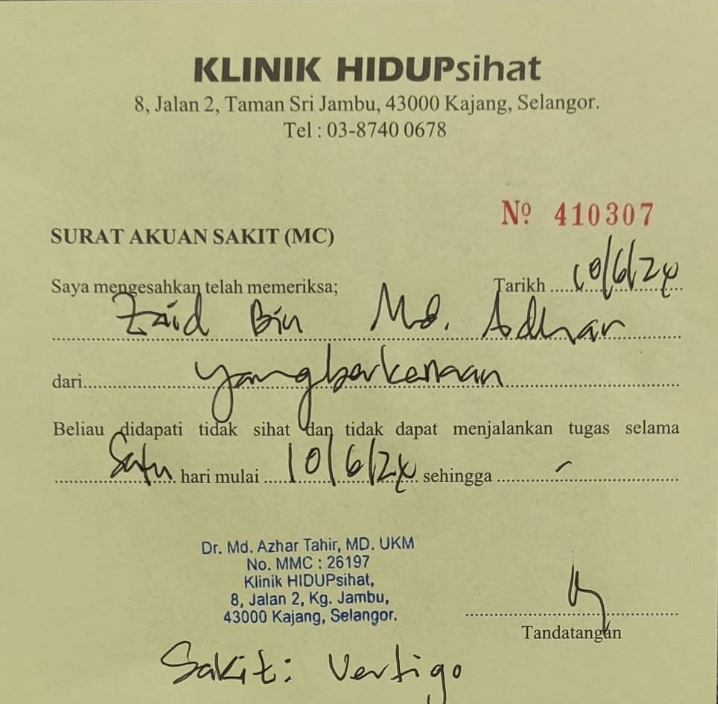 KLINIK HIDUPsihat
8, Jalan 2, Taman Sri Jambu, 43000 Kajang, Selangor.
Tel : 03-8740 0678
Nº 410307
SURAT AKUAN SAKIT (MC)
Saya mengesahkan telah memeriksa; Tarikh 10/6/24
Zaid Bin Md. Adhar
dari yang berkenaan
Beliau didapati tidak sihat dan tidak dapat menjalankan tugas selama
Satu hari mulai 10/6/24 sehingga -
Dr. Md. Azhar Tahir, MD. UKM
No. MMC : 26197
Klinik HIDUPsihat,
8, Jalan 2, Kg. Jambu,
43000 Kajang, Selangor.
Tandatangan
Sakit: Vertigo